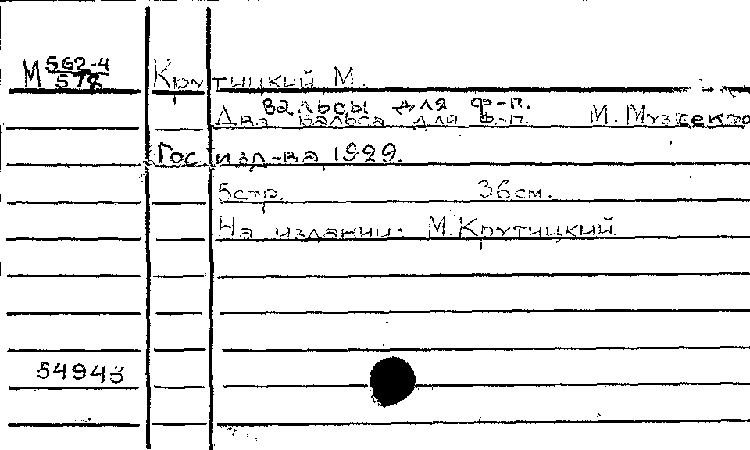 М 562-4/578 Крутицкий М.
вальсы для ф-п.
Два вальса для ф-п. М. Музсекто
Гос изд-ва, 1929.
5стр. 36см.
На издании: М. Крутицкий
54943